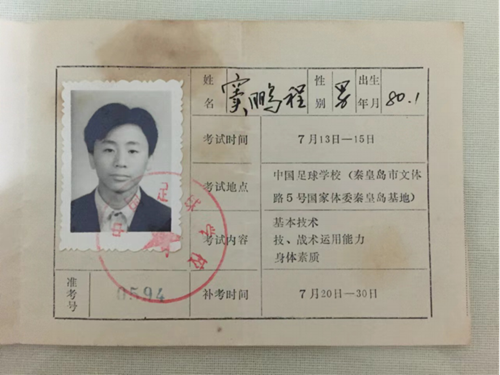 姓名 窦鹏程 性别 男 出生年月 80.1
考试时间 7月13日—15日
考试地点 中国足球学校（秦皇岛市文体
路5号国家体委秦皇岛基地）
考试内容 基本技术
技、战术运用能力
身体素质
准考号 0594 补考时间 7月20日—30日
中国足球学校